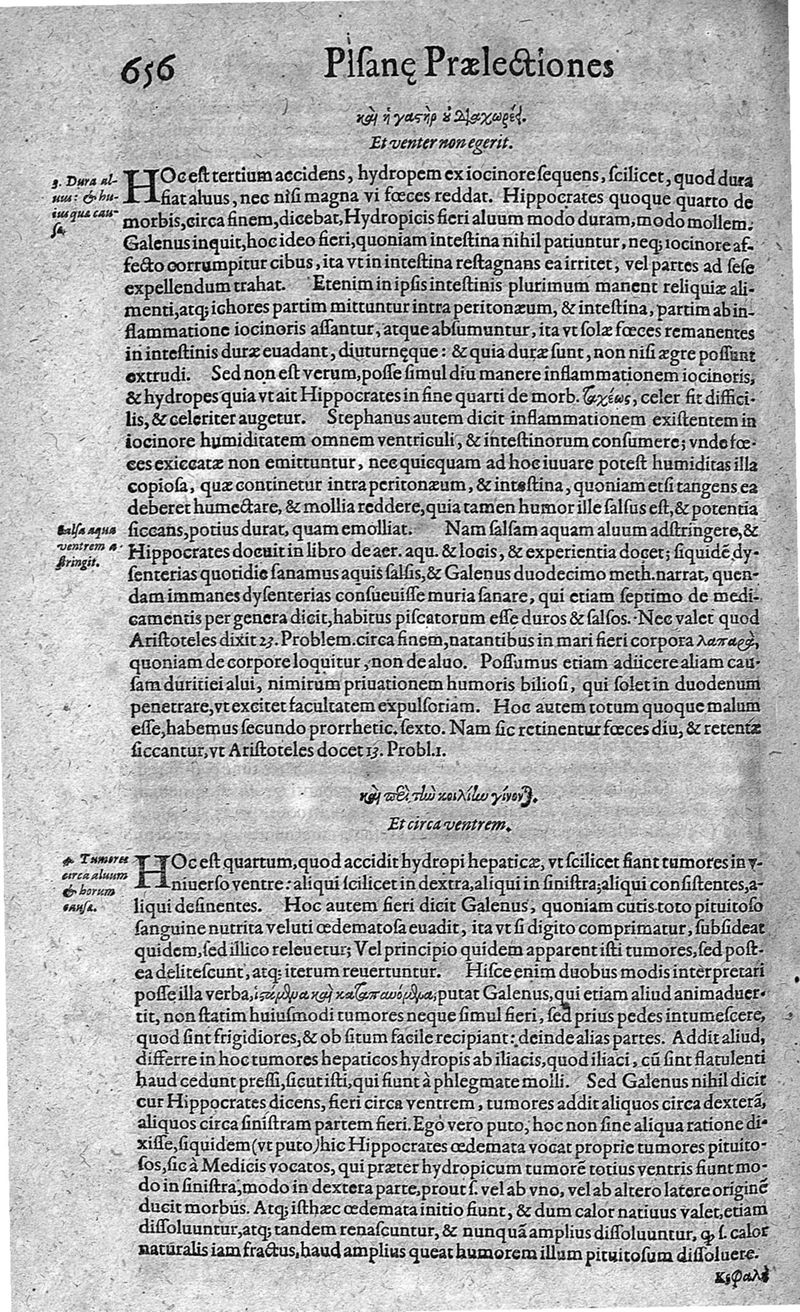 656
Pisanę Prælectiones
καὶ ἡ γαστὴρ οὐ διαχωρέει.
Et venter non egerit.
3. Dura al-
uus: & hu-
ius quæ cau-
sa.
HOc est tertium accidens, hydropem ex iocinore sequens, scilicet, quod dura
fiat aluus, nec nisi magna vi fœces reddat. Hippocrates quoque quarto de
morbis, circa finem, dicebat, Hydropicis fieri aluum modo duram, modo mollem.
Galenus inquit, hoc ideo fieri, quoniam intestina nihil patiuntur, neq; iocinore af-
fecto corrumpitur cibus, ita vt in intestina restagnans ea irritet, vel partes ad sese
expellendum trahat. Etenim in ipsis intestinis plurimum manent reliquiæ ali-
menti, atq; ichores partim mittuntur intra peritonæum, & intestina, partim ab in-
flammatione iocinoris assantur, atque absumuntur, ita vt solæ fœces remanentes
in intestinis duræ euadant, diuturnęque: & quia duræ sunt, non nisi ægre possunt
extrudi. Sed non est verum, posse simul diu manere inflammationem iocinoris,
& hydropes quia vt ait Hippocrates in fine quarti de morb. ταχέως, celer fit diffici-
lis, & celeriter augetur. Stephanus autem dicit inflammationem existentem in
iocinore humiditatem omnem ventriculi, & intestinorum consumere; vnde fœ-
ces exiccatæ non emittuntur, nec quicquam ad hoc iuuare potest humiditas illa
copiosa, quæ continetur intra peritonæum, & intestina, quoniam etsi tangens ea
deberet humectare, & mollia reddere, quia tamen humor ille salsus est, & potentia
Salsa aqua
ventrem a-
stringit.
siccans, potius durat, quam emolliat. Nam salsam aquam aluum adstringere, &
Hippocrates docuit in libro de aer. aqu. & locis, & experientia docet; siquidē dy-
senterias quotidie sanamus aquis salsis, & Galenus duodecimo meth. narrat, quen-
dam immanes dysenterias consueuisse muria sanare, qui etiam septimo de medi-
camentis per genera dicit, habitus piscatorum esse duros & salsos. Nec valet quod
Aristoteles dixit 23. Problem. circa finem, natantibus in mari fieri corpora λαπαρὰ,
quoniam de corpore loquitur, non de aluo. Possumus etiam adiicere aliam cau-
sam duritiei alui, nimirum priuationem humoris biliosi, qui solet in duodenum
penetrare, vt excitet facultatem expulsoriam. Hoc autem totum quoque malum
esse, habemus secundo prorrhetic. sexto. Nam sic retinentur fœces diu, & retentæ
siccantur, vt Aristoteles docet 13. Probl. 1.
καὶ περὶ τὴν κοιλίην γίνονται.
Et circa ventrem.
4. Tumores
circa aluum
& horum
causa.
HOc est quartum, quod accidit hydropi hepaticæ, vt scilicet fiant tumores in v-
niuerso ventre: aliqui scilicet in dextra, aliqui in sinistra; aliqui consistentes, a-
liqui desinentes. Hoc autem fieri dicit Galenus, quoniam cutis toto pituitoso
sanguine nutrita veluti œdematosa euadit, ita vt si digito comprimatur, subsideat
quidem, sed illico releuetur; Vel principio quidem apparent isti tumores, sed post-
ea delitescunt, atq; iterum reuertuntur. Hisce enim duobus modis interpretari
posse illa verba, ἱστάμενα καὶ καταπαυόμενα, putat Galenus, qui etiam aliud animaduer-
tit, non statim huiusmodi tumores neque simul fieri, sed prius pedes intumescere,
quod sint frigidiores, & ob situm facile recipiant: deinde alias partes. Addit aliud,
differre in hoc tumores hepaticos hydropis ab iliacis, quod iliaci, cū sint flatulenti
haud cedunt pressi, sicut isti, qui fiunt à phlegmate molli. Sed Galenus nihil dicit
cur Hippocrates dicens, fieri circa ventrem, tumores addit aliquos circa dexterā,
aliquos circa sinistram partem fieri. Ego vero puto, hoc non sine aliqua ratione di-
xisse, siquidem (vt puto) hic Hippocrates œdemata vocat proprie tumores pituito-
sos, sic à Medicis vocatos, qui præter hydropicum tumorē totius ventris fiunt mo-
do in sinistra, modo in dextera parte, prout s. vel ab vno, vel ab altero latere originē
ducit morbus. Atq; isthæc œdemata initio fiunt, & dum calor natiuus valet, etiam
dissoluuntur, atq; tandem renascuntur, & nunquā amplius dissoluuntur, ꝙ s. calor
naturalis iam fractus, haud amplius queat humorem illum pituitosum dissoluere.
Κεφαλὴ